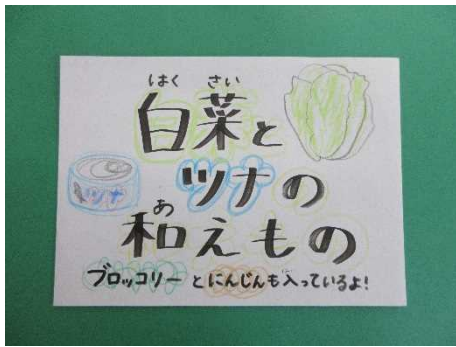 はくさい
白菜と
ツナ
ツナの
あ
和えもの
ブロッコリーとにんじんも入っているよ!